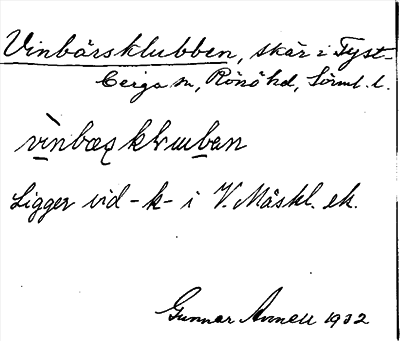 Vinbärsklubben, skär i Tyst-
berga sn, Rönö hd, Sörml. l.
vìnbæʂklɯban
Ligger vid -k- i V. Måskl. ek.
Gunnar Annell 1932